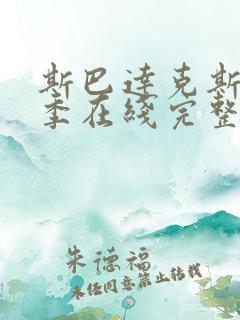 斯巴达克斯
季在线完整
朱德福
未经同意禁止转载